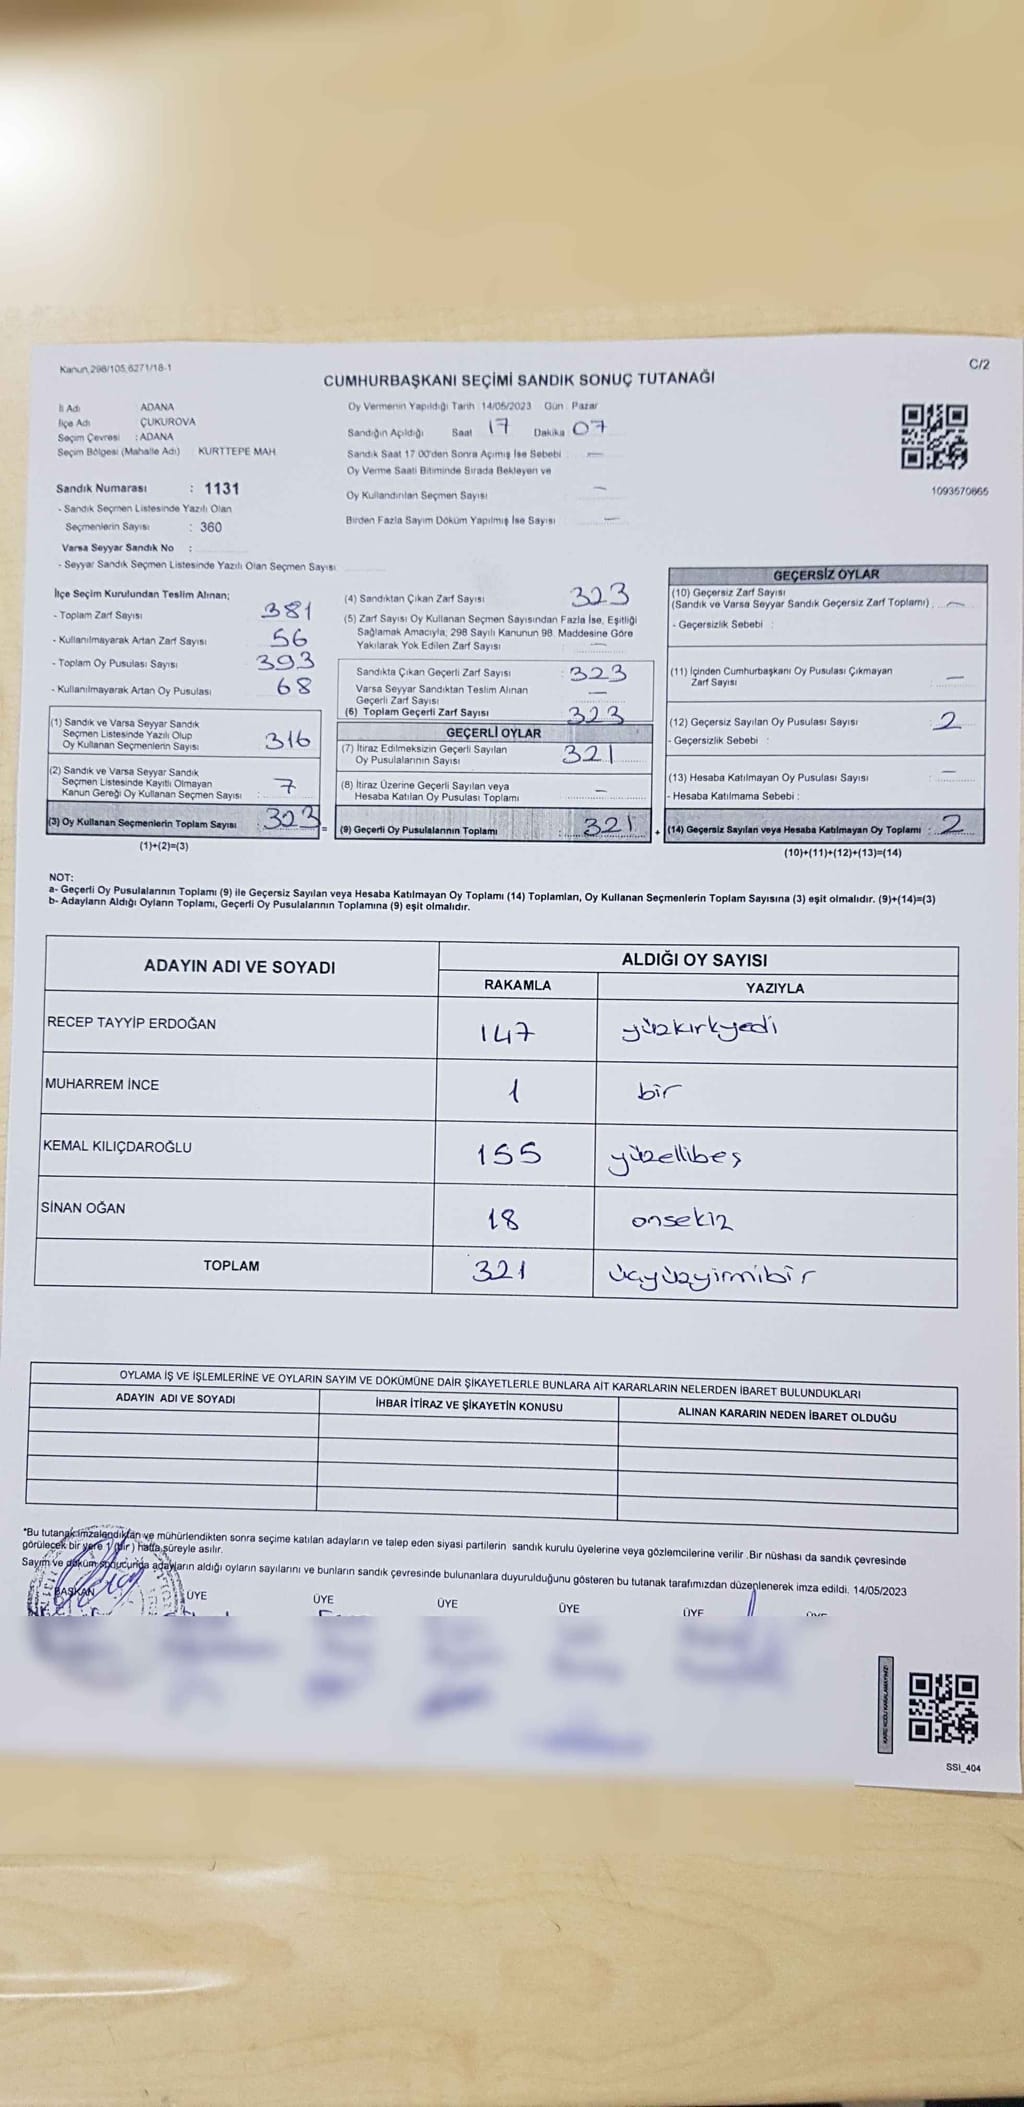 Kanun 298/105,6271/18-1
C/2
CUMHURBAŞKANI SEÇİMİ SANDIK SONUÇ TUTANAĞI
İl Adı ADANA
İlçe Adı ÇUKUROVA
Seçim Çevresi : ADANA
Seçim Bölgesi (Mahalle Adı) KURTTEPE MAH
Sandık Numarası : 1131
- Sandık Seçmen Listesinde Yazılı Olan
Seçmenlerin Sayısı : 360
Varsa Seyyar Sandık No :
- Seyyar Sandık Seçmen Listesinde Yazılı Olan Seçmen Sayısı
Oy Vermenin Yapıldığı Tarih 14/05/2023 Gün : Pazar
Sandığın Açıldığı Saat 17 Dakika 07
Sandık Saat 17.00'den Sonra Açımış İse Sebebi : —
Oy Verme Saati Bitiminde Sırada Bekleyen ve
Oy Kullandırılan Seçmen Sayısı —
Birden Fazla Sayım Döküm Yapılmış İse Sayısı : —
1093570865
İlçe Seçim Kurulundan Teslim Alınan;
- Toplam Zarf Sayısı 381
- Kullanılmayarak Artan Zarf Sayısı 56
- Toplam Oy Pusulası Sayısı 393
- Kullanılmayarak Artan Oy Pusulası 68
(1) Sandık ve Varsa Seyyar Sandık
Seçmen Listesinde Yazılı Olup
Oy Kullanan Seçmenlerin Sayısı 316
(2) Sandık ve Varsa Seyyar Sandık
Seçmen Listesinde Kayıtlı Olmayan
Kanun Gereği Oy Kullanan Seçmen Sayısı : 7
(3) Oy Kullanan Seçmenlerin Toplam Sayısı : 323 =
(1)+(2)=(3)
(4) Sandıktan Çıkan Zarf Sayısı 323
(5) Zarf Sayısı Oy Kullanan Seçmen Sayısından Fazla İse, Eşitliği
Sağlamak Amacıyla, 298 Sayılı Kanunun 98. Maddesine Göre
Yakılarak Yok Edilen Zarf Sayısı —
Sandıkta Çıkan Geçerli Zarf Sayısı 323
Varsa Seyyar Sandıktan Teslim Alınan
Geçerli Zarf Sayısı —
(6) Toplam Geçerli Zarf Sayısı 323
GEÇERLİ OYLAR
(7) İtiraz Edilmeksizin Geçerli Sayılan
Oy Pusulalarının Sayısı 321
(8) İtiraz Üzerine Geçerli Sayılan veya
Hesaba Katılan Oy Pusulası Toplamı —
(9) Geçerli Oy Pusulalarının Toplamı : 321 +
GEÇERSİZ OYLAR
(10) Geçersiz Zarf Sayısı
(Sandık ve Varsa Seyyar Sandık Geçersiz Zarf Toplamı) —
- Geçersizlik Sebebi :
(11) İçinden Cumhurbaşkanı Oy Pusulası Çıkmayan
Zarf Sayısı —
(12) Geçersiz Sayılan Oy Pusulası Sayısı 2
- Geçersizlik Sebebi :
(13) Hesaba Katılmayan Oy Pusulası Sayısı —
- Hesaba Katılmama Sebebi :
(14) Geçersiz Sayılan veya Hesaba Katılmayan Oy Toplamı : 2
(10)+(11)+(12)+(13)=(14)
NOT:
a- Geçerli Oy Pusulalarının Toplamı (9) ile Geçersiz Sayılan veya Hesaba Katılmayan Oy Toplamı (14) Toplamları, Oy Kullanan Seçmenlerin Toplam Sayısına (3) eşit olmalıdır. (9)+(14)=(3)
b- Adayların Aldığı Oyların Toplamı, Geçerli Oy Pusulalarının Toplamına (9) eşit olmalıdır.
ADAYIN ADI VE SOYADI ALDIĞI OY SAYISI
RAKAMLA YAZIYLA
RECEP TAYYİP ERDOĞAN 147 yüzkırkyedi
MUHARREM İNCE 1 bir
KEMAL KILIÇDAROĞLU 155 yüzellibeş
SİNAN OĞAN 18 onsekiz
TOPLAM 321 üçyüzyirmibir
OYLAMA İŞ VE İŞLEMLERİNE VE OYLARIN SAYIM VE DÖKÜMÜNE DAİR ŞİKAYETLERLE BUNLARA AİT KARARLARIN NELERDEN İBARET BULUNDUKLARI
ADAYIN ADI VE SOYADI İHBAR İTİRAZ VE ŞİKAYETİN KONUSU ALINAN KARARIN NEDEN İBARET OLDUĞU
*Bu tutanak imzalandıktan ve mühürlendikten sonra seçime katılan adayların ve talep eden siyasi partilerin sandık kurulu üyelerine veya gözlemcilerine verilir .Bir nüshası da sandık çevresinde
görülecek bir yere 1 (bir ) hafta süreyle asılır.
Sayım ve döküm sonucunda adayların aldığı oyların sayılarını ve bunların sandık çevresinde bulunanlara duyurulduğunu gösteren bu tutanak tarafımızdan düzenlenerek imza edildi. 14/05/2023
BAŞKAN ÜYE ÜYE ÜYE ÜYE ÜYE
SSI_404